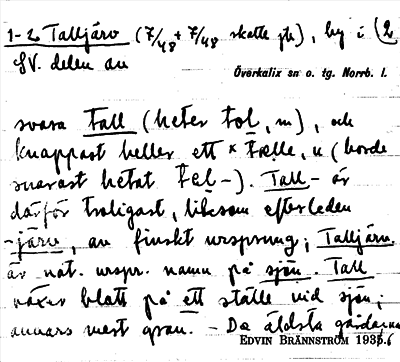 1-2 Talljärv (7/48 + 7/48 skatte jb), by i (2
SV. delen av
Överkalix sn o. tg. Norrb. l.
svara tall (heter tol, m), och
knappast heller ett × Tælle, n (borde
snarast hetat Tel-). Tall- är
därför troligast, liksom efterleden
-järv, av finskt ursprung; Talljärv
är nat. urspr. namn på sjön. Tall
växer blott på ett ställe vid sjön;
annars mest gran. - De äldsta gårdarna
EDVIN BRÄNNSTRÖM 1935.